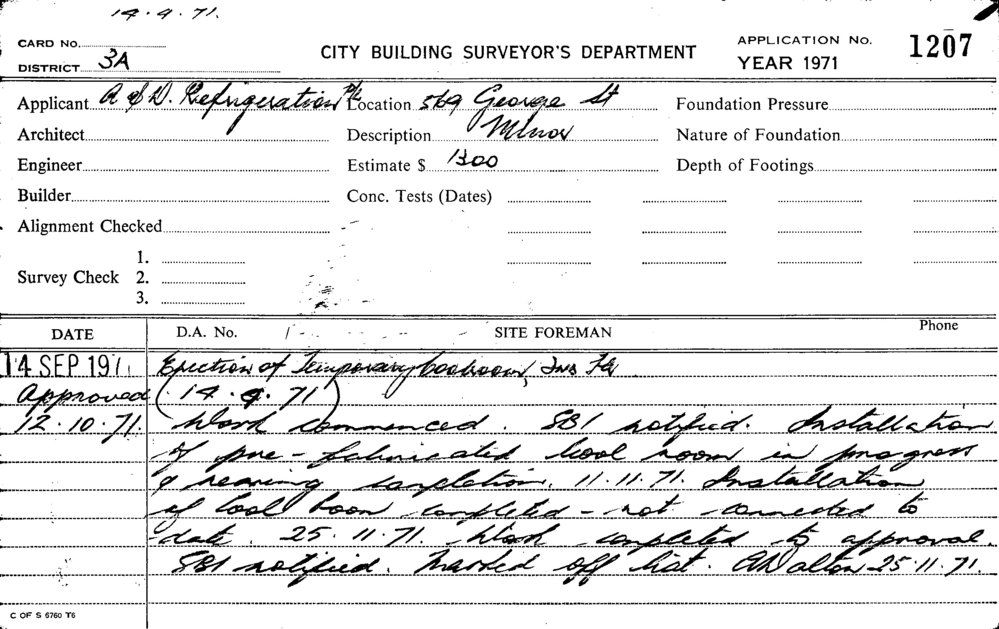 14.9.71.
CARD No.
DISTRICT 3A
CITY BUILDING SURVEYOR'S DEPARTMENT
APPLICATION No. 1207
YEAR 1971
Applicant A & D. Refrigeration P/L Location 569 George St Foundation Pressure
Architect Description Minor Nature of Foundation
Engineer Estimate $ 1300 Depth of Footings
Builder Conc. Tests (Dates)
Alignment Checked
1.
Survey Check 2.
3.
DATE D.A. No. SITE FOREMAN Phone
14 SEP 1971 Erection of Temporary Coolroom,
Approved (14.9.71)
12.10.71. Work commenced. SBI notified. Installation
of pre-fabricated cool room in progress
& nearing completion. 11.11.71. Installation
of cool room completed - not connected to
date. 25.11.71. Work completed to approval.
SBI notified. Marked off list. 25.11.71.
C OF S 6760 T6